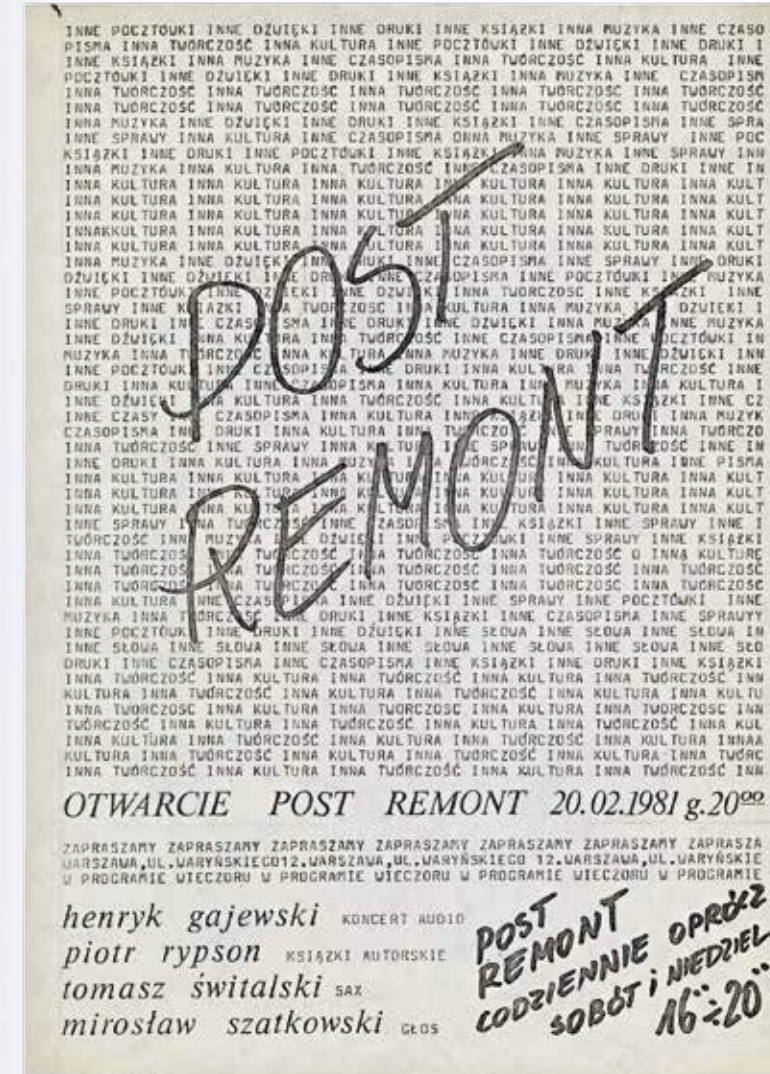 INNE POCZTÓWKI INNE DŹWIĘKI INNE DRUKI INNE KSIĄŻKI INNA MUZYKA INNE CZASO
PISMA INNA TWÓRCZOŚĆ INNA KULTURA INNE POCZTÓWKI INNE DŹWIĘKI INNE DRUKI I
INNE KSIĄŻKI INNA MUZYKA INNE CZASOPISMA INNA TWÓRCZOŚĆ INNA KULTURA INNE
POCZTÓWKI INNE DŹWIĘKI INNE DRUKI INNE KSIĄŻKI INNA MUZYKA INNE CZASOPISM
INNA TWÓRCZOŚĆ INNA TWÓRCZOŚĆ INNA TWÓRCZOŚĆ INNA TWÓRCZOŚĆ INNA TWÓRCZOŚĆ
INNA TWÓRCZOŚĆ INNA TWÓRCZOŚĆ INNA TWÓRCZOŚĆ INNA TWÓRCZOŚĆ INNA TWÓRCZOŚĆ
INNA MUZYKA INNE DŹWIĘKI INNE DRUKI INNE KSIĄŻKI INNE CZASOPISMA INNE SPRA
INNE SPRAWY INNA KULTURA INNE CZASOPISMA ONNA MUZYKA INNE SPRAWY INNE POC
KSIĄŻKI INNE DRUKI INNE POCZTÓWKI INNE KSIĄŻKI INNA MUZYKA INNE SPRAWY INN
INNA MUZYKA INNA KULTURA INNA TWÓRCZOŚĆ INNE CZASOPISMA INNE DRUKI INNE IN
INNA KULTURA INNA KULTURA INNA KULTURA INNA KULTURA INNA KULTURA INNA KULT
INNA KULTURA INNA KULTURA INNA KULTURA INNA KULTURA INNA KULTURA INNA KULT
INNA KULTURA INNA KULTURA INNA KULTURA INNA KULTURA INNA KULTURA INNA KULT
INNAKKULTURA INNA KULTURA INNA KULTURA INNA KULTURA INNA KULTURA INNA KULT
INNA KULTURA INNA KULTURA INNA KULTURA INNA KULTURA INNA KULTURA INNA KULT
INNA MUZYKA INNE DŹWIĘKI INNE DRUKI INNE CZASOPISMA INNE SPRAWY INNE DRUKI
DŹWIĘKI INNE DŹWIĘKI INNE INNE CZASOPISMA INNE POCZTÓWKI MUZYKA
INNE POCZTÓWKI INNE DŹWIĘKI INNE DŹWIĘKI INNA TWÓRCZOŚĆ INNE KSIĄŻKI INNE
SPRAWY INNE KSIĄŻKI INNA TWÓRCZOŚĆ INNA KULTURA INNA MUZYKA DŹWIĘKI I
INNE DRUKI INNE CZASOPISMA INNE DRUKI INNE DŹWIĘKI INNA MUZYKA INNE MUZYKA
INNE DŹWIĘKI INNA KULTURA TWÓRCZOŚĆ INNE CZASOPISMA INNE POCZTÓWKI IN
MUZYKA INNA TWÓRCZOŚĆ INNA KULTURA INNA MUZYKA INNE DRUKI INNE DŹWIĘKI INN
INNE POCZTÓWKI INNE CZASOPISMA INNE DRUKI INNA KULTURA INNA TWÓRCZOŚĆ
DRUKI INNA KULTURA INNE CZASOPISMA INNA KULTURA INNA MUZYKA INNA KULTURA I
INNE DŹWIĘKI INNA KULTURA INNA TWÓRCZOŚĆ INNA KULTURA INNE KSIĄŻKI INNE CZ
INNE CZASY CZASOPISMA INNA KULTURA INNE KSIĄŻKI INNE DRUKI INNA MUZYK
CZASOPISMA INNE DRUKI INNA KULTURA INNA TWÓRCZOŚĆ SPRAWY INNA TWÓRCZO
INNA TWÓRCZOŚĆ INNE SPRAWY INNA KULTURA INNE SPRAWY INNA TWÓRCZOŚĆ INNE IN
INNE DRUKI INNA KULTURA INNA MUZYKA INNA TWÓRCZOŚĆ INNA KULTURA INNE PISMA
INNA KULTURA INNA KULTURA INNA KULTURA INNA KULTURA INNA KULTURA INNA KULT
INNA KULTURA INNA KULTURA INNA KULTURA INNA KULTURA INNA KULTURA INNA KULT
INNA KULTURA INNA KULTURA INNA KULTURA INNA KULTURA INNA KULTURA INNA KULT
INNE SPRAWY INNA TWÓRCZOŚĆ INNE INNE KSIĄŻKI INNE SPRAWY INNE I
TWÓRCZOŚĆ INNA MUZYKA INNE DŹWIĘKI INNE POCZTÓWKI INNE SPRAWY INNE KSIĄŻKI
INNA TWÓRCZOŚĆ INNA TWÓRCZOŚĆ INNA TWÓRCZOŚĆ INNA TWÓRCZOŚĆ O INNĄ KULTURĘ
INNA TWÓRCZOŚĆ INNA TWÓRCZOŚĆ INNA TWÓRCZOŚĆ INNA TWÓRCZOŚĆ INNA TWÓRCZOŚĆ
INNA TWÓRCZOŚĆ INNA TWÓRCZOŚĆ INNA TWÓRCZOŚĆ INNA TWÓRCZOŚĆ INNA TWÓRCZOŚĆ
INNA KULTURA INNE CZASOPISMA INNE DŹWIĘKI INNE SPRAWY INNE POCZTÓWKI INNE
MUZYKA INNA TWÓRCZOŚĆ INNE DRUKI INNE KSIĄŻKI INNE CZASOPISMA INNE SPRAWYY
INNE POCZTÓWKI INNE DRUKI INNE DŹWIĘKI INNE SŁOWA INNE SŁOWA INNE SŁOWA IN
INNE SŁOWA INNE SŁOWA INNE SŁOWA INNE SŁOWA INNE SŁOWA INNE SŁOWA INNE SŁO
DRUKI INNE CZASOPISMA INNE CZASOPISMA INNE KSIĄŻKI INNE DRUKI INNE KSIĄŻKI
INNA TWÓRCZOŚĆ INNA KULTURA INNA TWÓRCZOŚĆ INNA KULTURA INNA TWÓRCZOŚĆ INN
KULTURA INNA TWÓRCZOŚĆ INNA KULTURA INNA TWÓRCZOŚĆ INNA KULTURA INNA KULTU
INNA TWÓRCZOŚĆ INNA KULTURA INNA TWÓRCZOŚĆ INNA KULTURA INNA TWÓRCZOŚĆ INN
TWÓRCZOŚĆ INNA KULTURA INNA TWÓRCZOŚĆ INNA KULTURA INNA TWÓRCZOŚĆ INNA KUL
INNA KULTURA INNA TWÓRCZOŚĆ INNA KULTURA INNA TWÓRCZOŚĆ INNA KULTURA INNAA
KULTURA INNA TWÓRCZOŚĆ INNA KULTURA INNA TWÓRCZOŚĆ INNA KULTURA INNA TWÓRC
INNA TWÓRCZOŚĆ INNA KULTURA INNA TWÓRCZOŚĆ INNA KULTURA INNA TWÓRCZOŚĆ INN
POST
REMONT
OTWARCIE POST REMONT 20.02.1981 g.20⁰⁰
ZAPRASZAMY ZAPRASZAMY ZAPRASZAMY ZAPRASZAMY ZAPRASZAMY ZAPRASZAMY ZAPRASZA
WARSZAWA,UL.WARYŃSKIEGO12.WARSZAWA,UL.WARYŃSKIEGO 12.WARSZAWA,UL.WARYŃSKIE
W PROGRAMIE WIECZORU W PROGRAMIE WIECZORU W PROGRAMIE WIECZORU W PROGRAMIE
henryk gajewski KONCERT AUDIO
piotr rypson KSIĄŻKI AUTORSKIE
tomasz świtalski SAX
mirosław szatkowski GŁOS
POST
REMONT
CODZIENNIE OPRÓCZ
SOBÓT i NIEDZIEL
16⁰⁰÷20⁰⁰